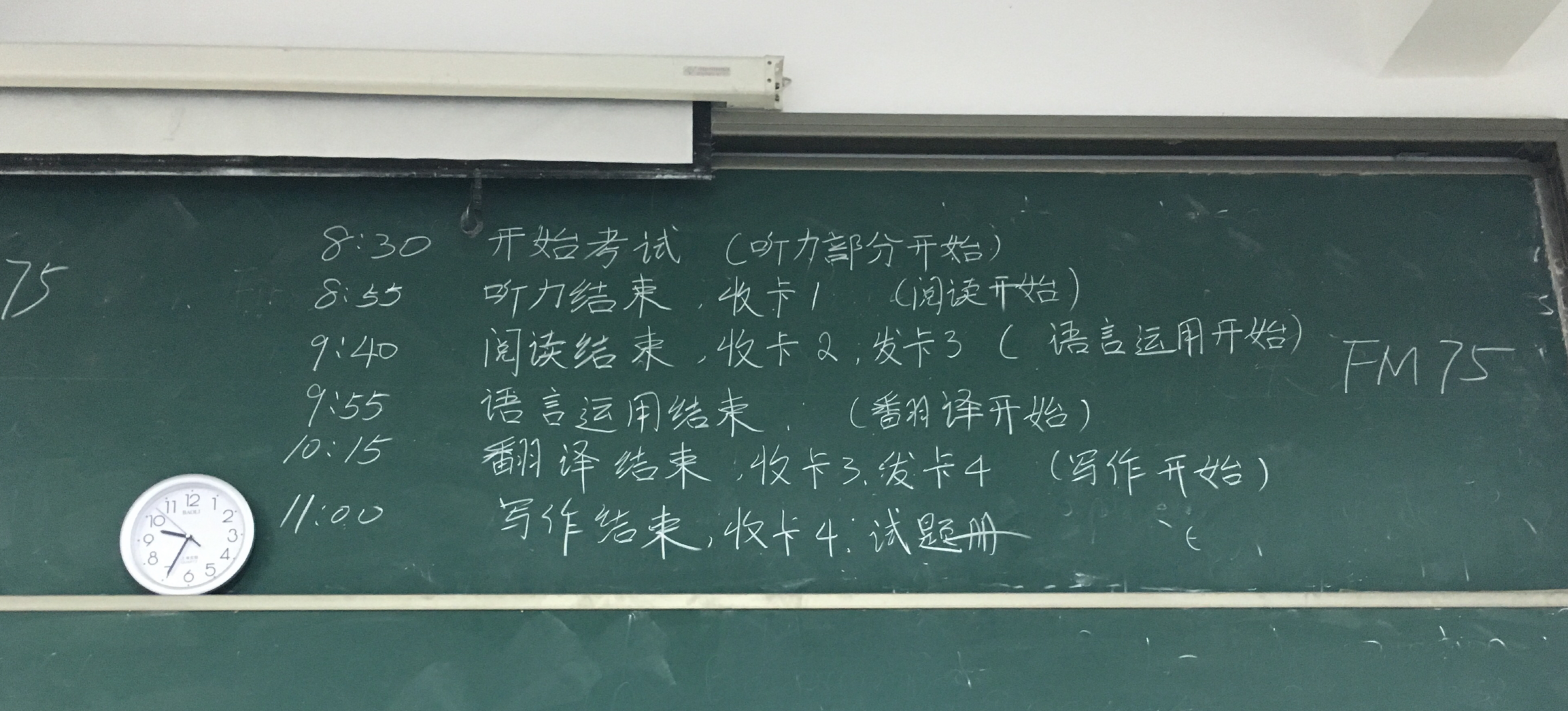 8:30 开始考试 (听力部分开始)
8:55 听力结束,收卡1 (阅读开始)
75
9:40 阅读结束,收卡2,发卡3 (语言运用开始)
FM75
9:55 语言运用结束, (翻译开始)
10:15 翻译结束,收卡3,发卡4 (写作开始)
11:00 写作结束,收卡4,试题册
12
1
2
3
4
5
6
7
8
9
10
11